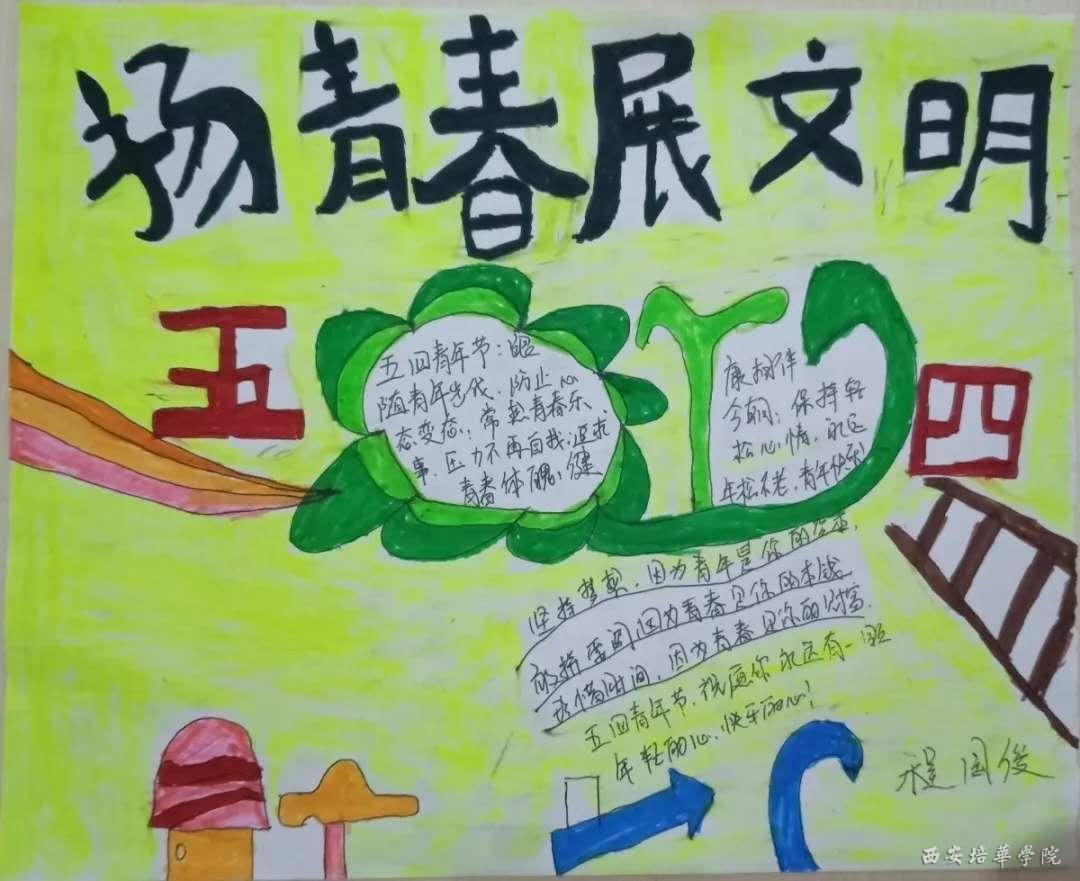 扬青春展文明
五
五四青年节:
随青年步伐,防止心
态变态,常想青春乐
事,压力不再自找,追求
青春体魄,健
康相伴
今朝;保持轻
松心情,永远
年轻不老,青年快乐
四
坚持梦想,因为青年是你的资本,
因为青春是你的本钱
珍惜时间,因为青春是你的财富.
五四青年节,祝愿你永远有一
年轻的心,快乐的心!
程国俊
西安培華學院